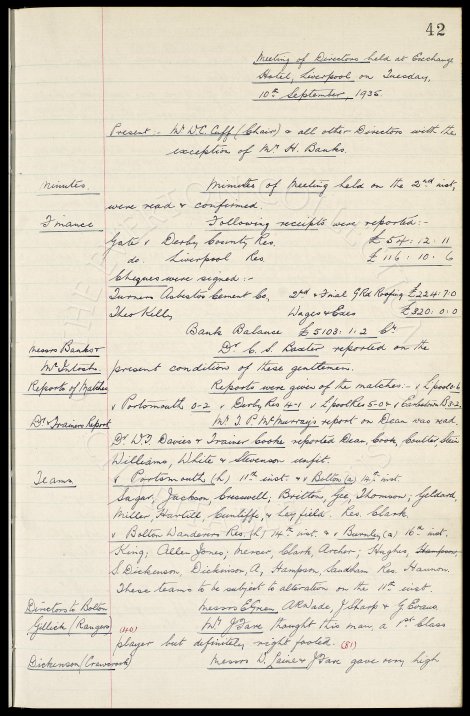 42
Meeting of Directors held at Exchange
Hotel, Liverpool on Tuesday,
10th September, 1935.
Present:- Mr W.C. Cuff (Chair) & all other Directors with the
exception of Mr. H. Banks.
Minutes Minutes of Meeting held on the 2nd inst,
were read & confirmed.
Finance Following receipts were reported:-
Gate v Derby County Res. £54:12:11
do. Liverpool Res £116:10:6
Cheques were signed:-
Turners Asbestos Cement Co, 2nd & Final G Rd Roofing £224:7:0
Theo Kelly Wages & Exes £320:0:0
Bank Balance £5103:1:2 Cr
Messrs Banks & Dr. C. S. Baxter reported on the
McIntosh present condition of these gentlemen.
Reports of Matches Reports were given of the matches:- v Lpool 0-6
v Portsmouth 0-2 v Derby Res 4-1 v Lpool Res 5-0 & v 3-2.
Dr & Trainers Report Mr T. P. McMurray's report on Dean was read.
Dr W.T. Davies & Trainer Cooke reported Dean, Cook, Coulter, Stein
Williams, White & Stevenson unfit.
Teams v Portsmouth (h) 11th inst. & v Bolton (a) 14th inst.
Sagar; Jackson, Cresswell; Britton, Gee, Thomson; Geldard,
Miller, Hartill, Cunliffe, & Leyfield. Res. Clark
v Bolton Wanderers Res. (h) 14th inst. & v Burnley (a) 16th inst.
King; Allen, Jones; Mercer, Clark, Archer; Hughes, Hampson,
S. Dickinson, Dickinson, A, Hampson, Sandham Res. Hannon.
These teams to be subject to alteration on the 11th inst.
Directors to Bolton Messrs E. Green, A. Wade, J. Sharp & G. Evans
Gillick/Rangers Mr. J. Fare thought this man, a 1st Class
player but definitely right footed. (81)
Dickinson/ Messrs D. Laine & J Fare gave very high